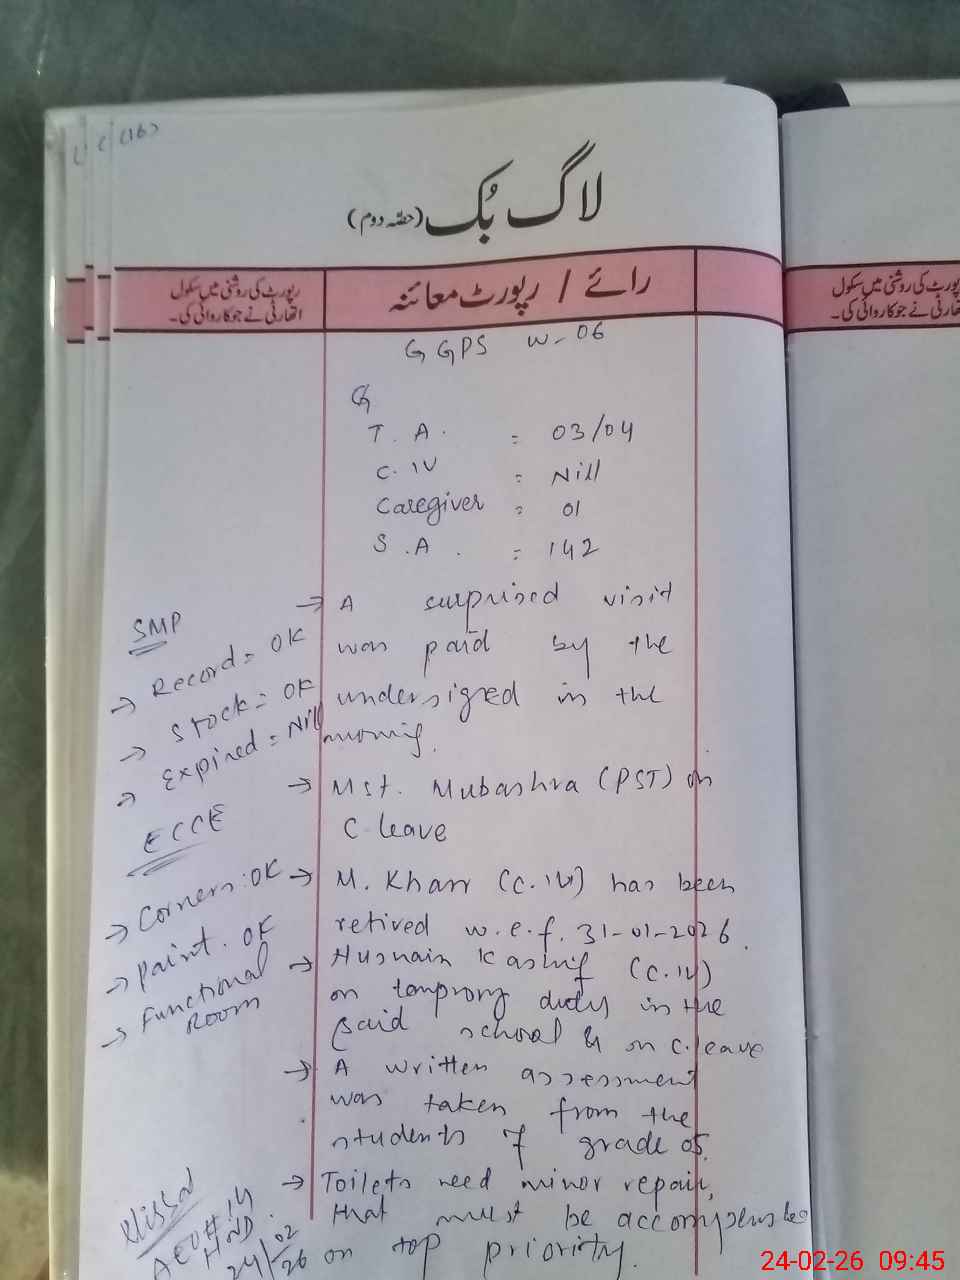 (16)
لاگ بُک (حصّہ دوم)
رپورٹ کی روشنی میں سکول
اتھارٹی نے جو کاروائی کی۔
رائے / رپورٹ معائنہ
پورٹ کی روشنی میں سکول
تھارٹی نے جو کاروائی کی۔
G GPS W-06
T. A. = 03/04
C. IV = Nill
Caregiver = 01
S.A. = 142
→ A surprised visit
was paid by the
undersigned in the
→ Mst. Mubashra (PST) on
C. leave
→ M. Khan (C.IV) has been
retired w.e.f. 31-01-2026.
→ Husnain Kashif (C.IV)
on temprory duty in the
said school & on C.leave
→ A written assessment
was taken from the
students of grade 05.
→ Toilets need minor repair,
that must be
on top priority.
SMP
→ Record = OK
→ Stock = OK
→ Expired = Nill
ECCE
→ Corners: OK
→ paint. OK
→ Functional
Room
AEO # 14
HND.
24/02/26
24-02-26 09:45